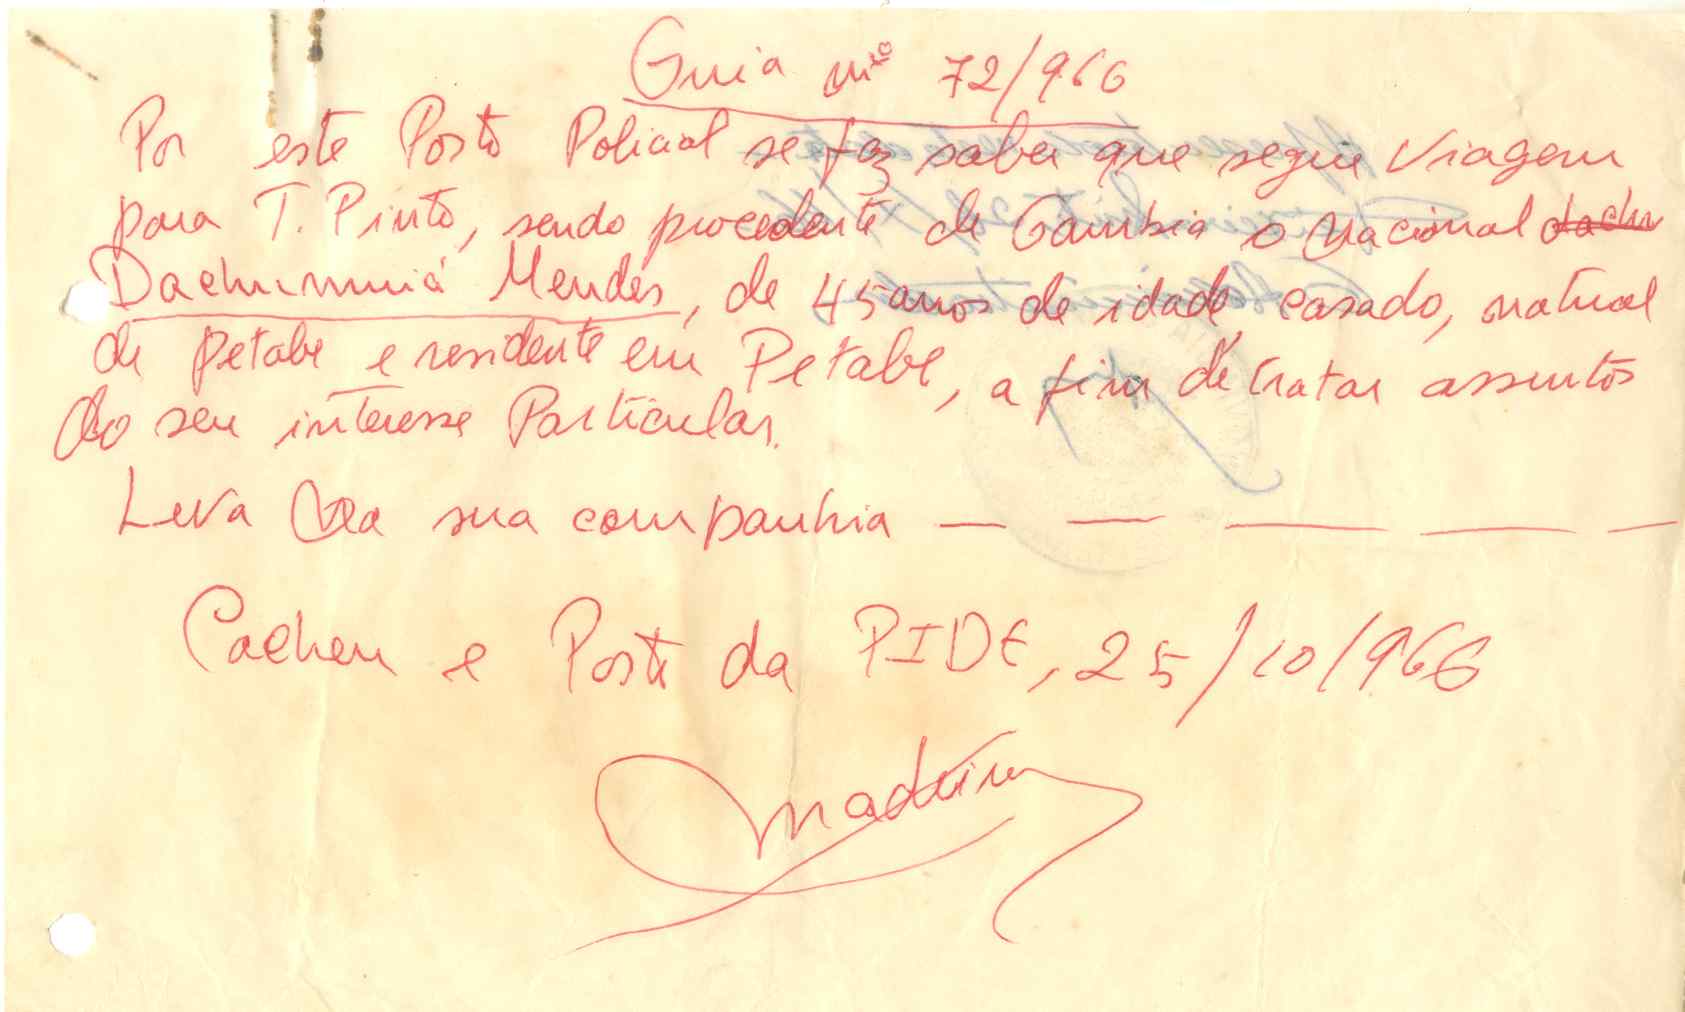 Guia nº 72/966
Por este Posto Policial se faz saber que segue viagem
para T. Pinto, sendo procedente de Gambia o nacional
Mendes, de 45 anos de idade, casado, natural
de Petabe e residente em Petabe, a fim de tratar assuntos
do seu interesse Particular.
Leva na sua companhia — — — — —
Cacheu e Posto da PIDE, 25/10/966
Madeira